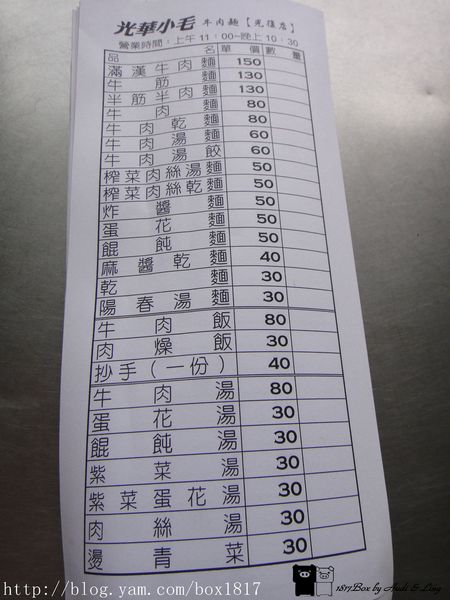 光華小毛 牛肉麵【光復店】
營業時間：上午11：00~晚上10：30
品名 單價 數量
滿漢牛肉麵 150
牛筋麵 130
半筋半肉麵 130
牛肉麵 80
牛肉乾麵 80
牛肉湯麵 60
牛肉湯餃 60
榨菜肉絲湯麵 50
榨菜肉絲乾麵 50
炸醬麵 50
蛋花麵 50
餛飩麵 50
麻醬乾麵 40
乾麵 30
陽春湯麵 30
牛肉飯 80
肉燥飯 30
抄手（一份） 40
牛肉湯 80
蛋花湯 30
餛飩湯 30
紫菜湯 30
紫菜蛋花湯 30
肉絲湯 30
燙青菜 30
http://blog.yam.com/box1817
1817Box by Audi & Ling